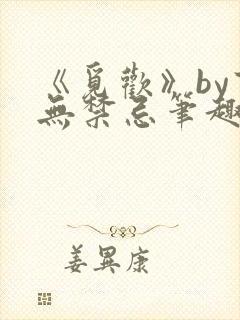 《覓歡》by
無禁忌筆趣
姜異康